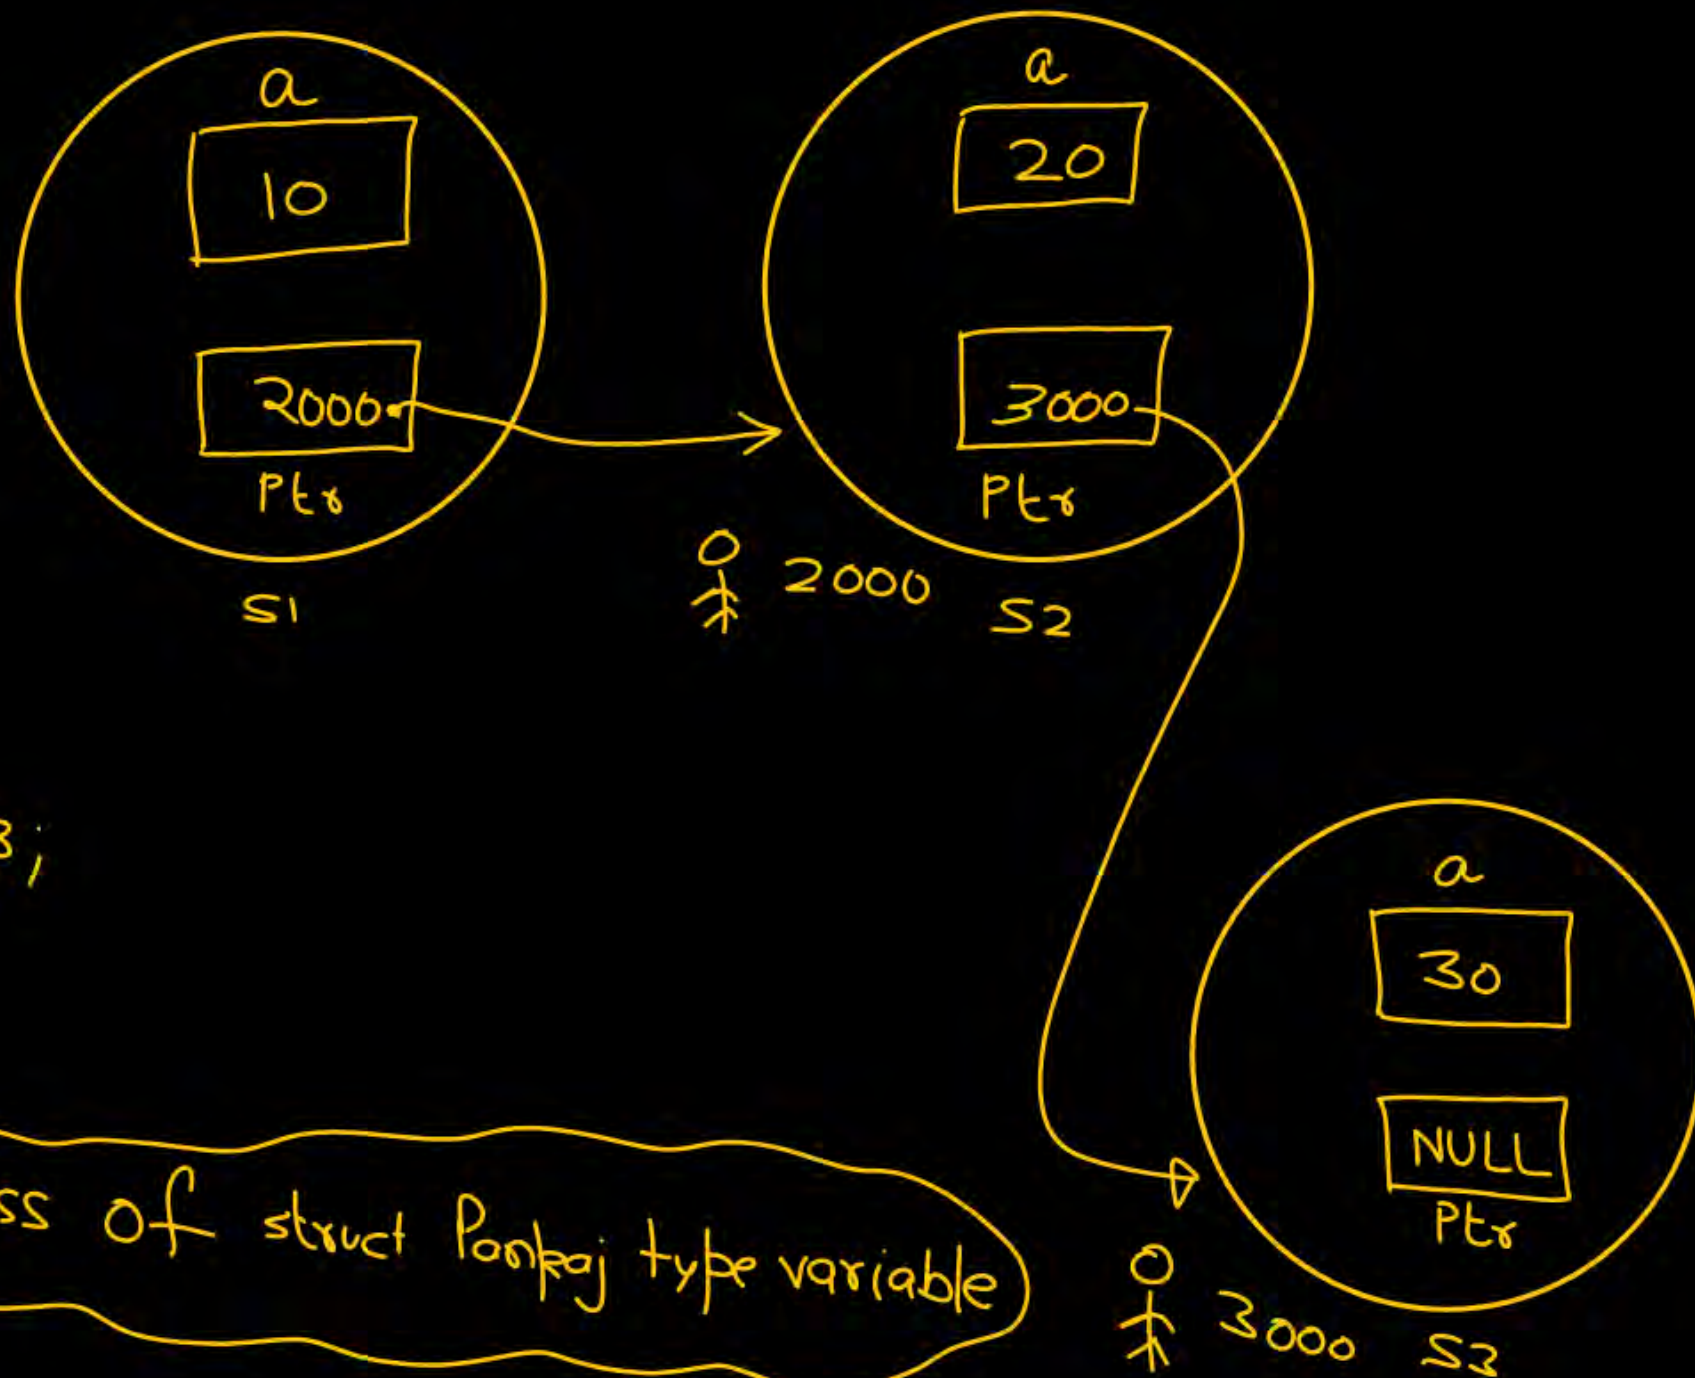 a
10
2000
Ptr
S1
a
20
3000
Ptr
2000 S2
3;
a
30
NULL
Ptr
3000 S3
ss of struct Pankaj type variable